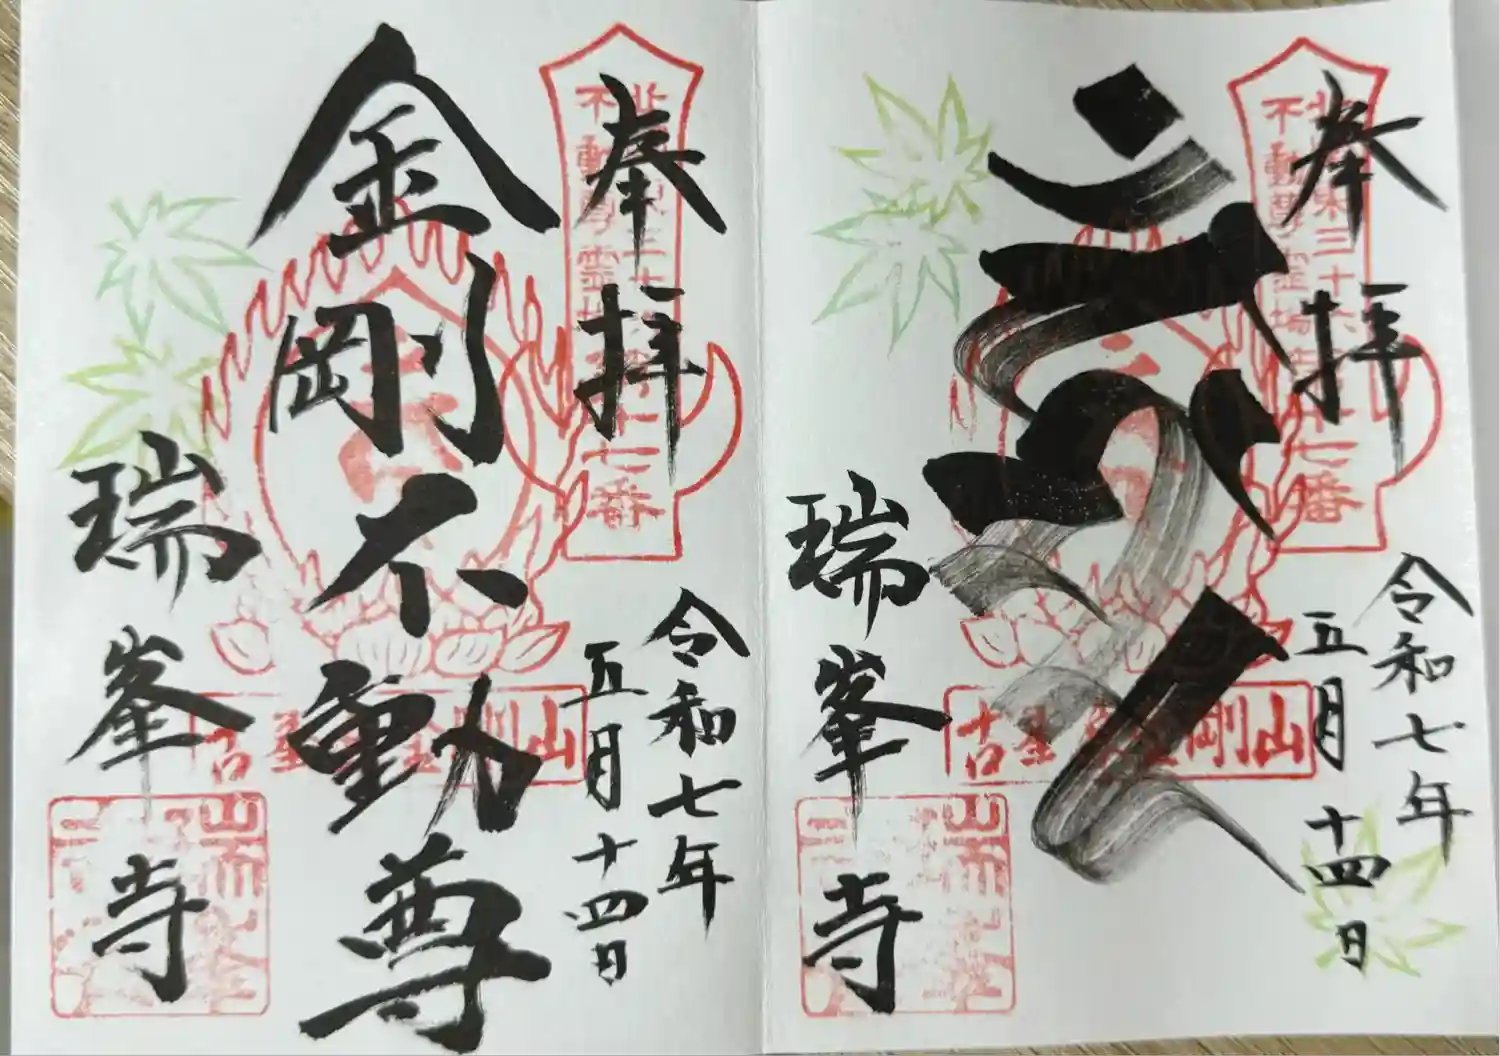 奉拝
北関東三十六
不動尊霊場第十七番
令和七年
五月十四日
瑞峯寺
奉拝
北関東三十六
不動尊霊場第十七番
令和七年
五月十四日
金剛不動尊
瑞峯寺